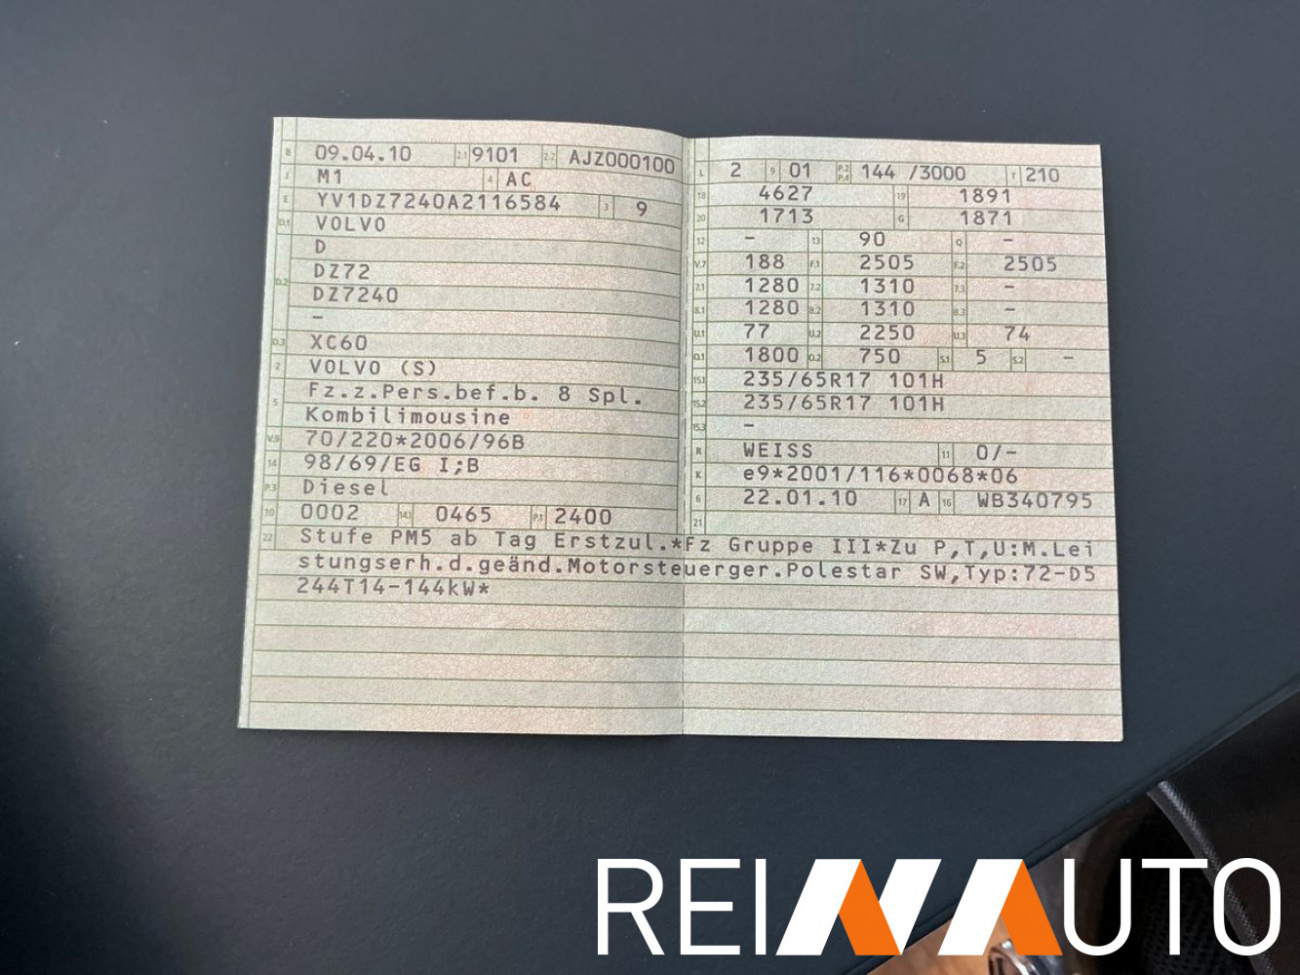 B 09.04.10 2.1 9101 2.2 AJZ000100
J M1 4 AC
E YV1DZ7240A2116584 3 9
D.1 VOLVO
D
D.2 DZ72
DZ7240
–
D.3 XC60
2 VOLVO (S)
5 Fz.z.Pers.bef.b. 8 Spl.
Kombilimousine
V.9 70/220*2006/96B
14 98/69/EG I;B
P.3 Diesel
10 0002 14.1 0465 P.1 2400
L 2 9 01 P.2 P.4 144 /3000 T 210
18 4627 19 1891
20 1713 G 1871
12 – 13 90 Q –
V.7 188 F.1 2505 F.2 2505
7.1 1280 7.2 1310 7.3 –
8.1 1280 8.2 1310 8.3 –
U.1 77 U.2 2250 U.3 74
O.1 1800 O.2 750 S.1 5 S.2 –
15.1 235/65R17 101H
15.2 235/65R17 101H
15.3 –
R WEISS 11 0/-
K e9*2001/116*0068*06
6 22.01.10 17 A 16 WB340795
21
22 Stufe PM5 ab Tag Erstzul.*Fz Gruppe III*Zu P,T,U:M.Lei
stungserh.d.geänd.Motorsteuerger.Polestar SW,Typ:72-D5
244T14-144kW*
REINAUTO